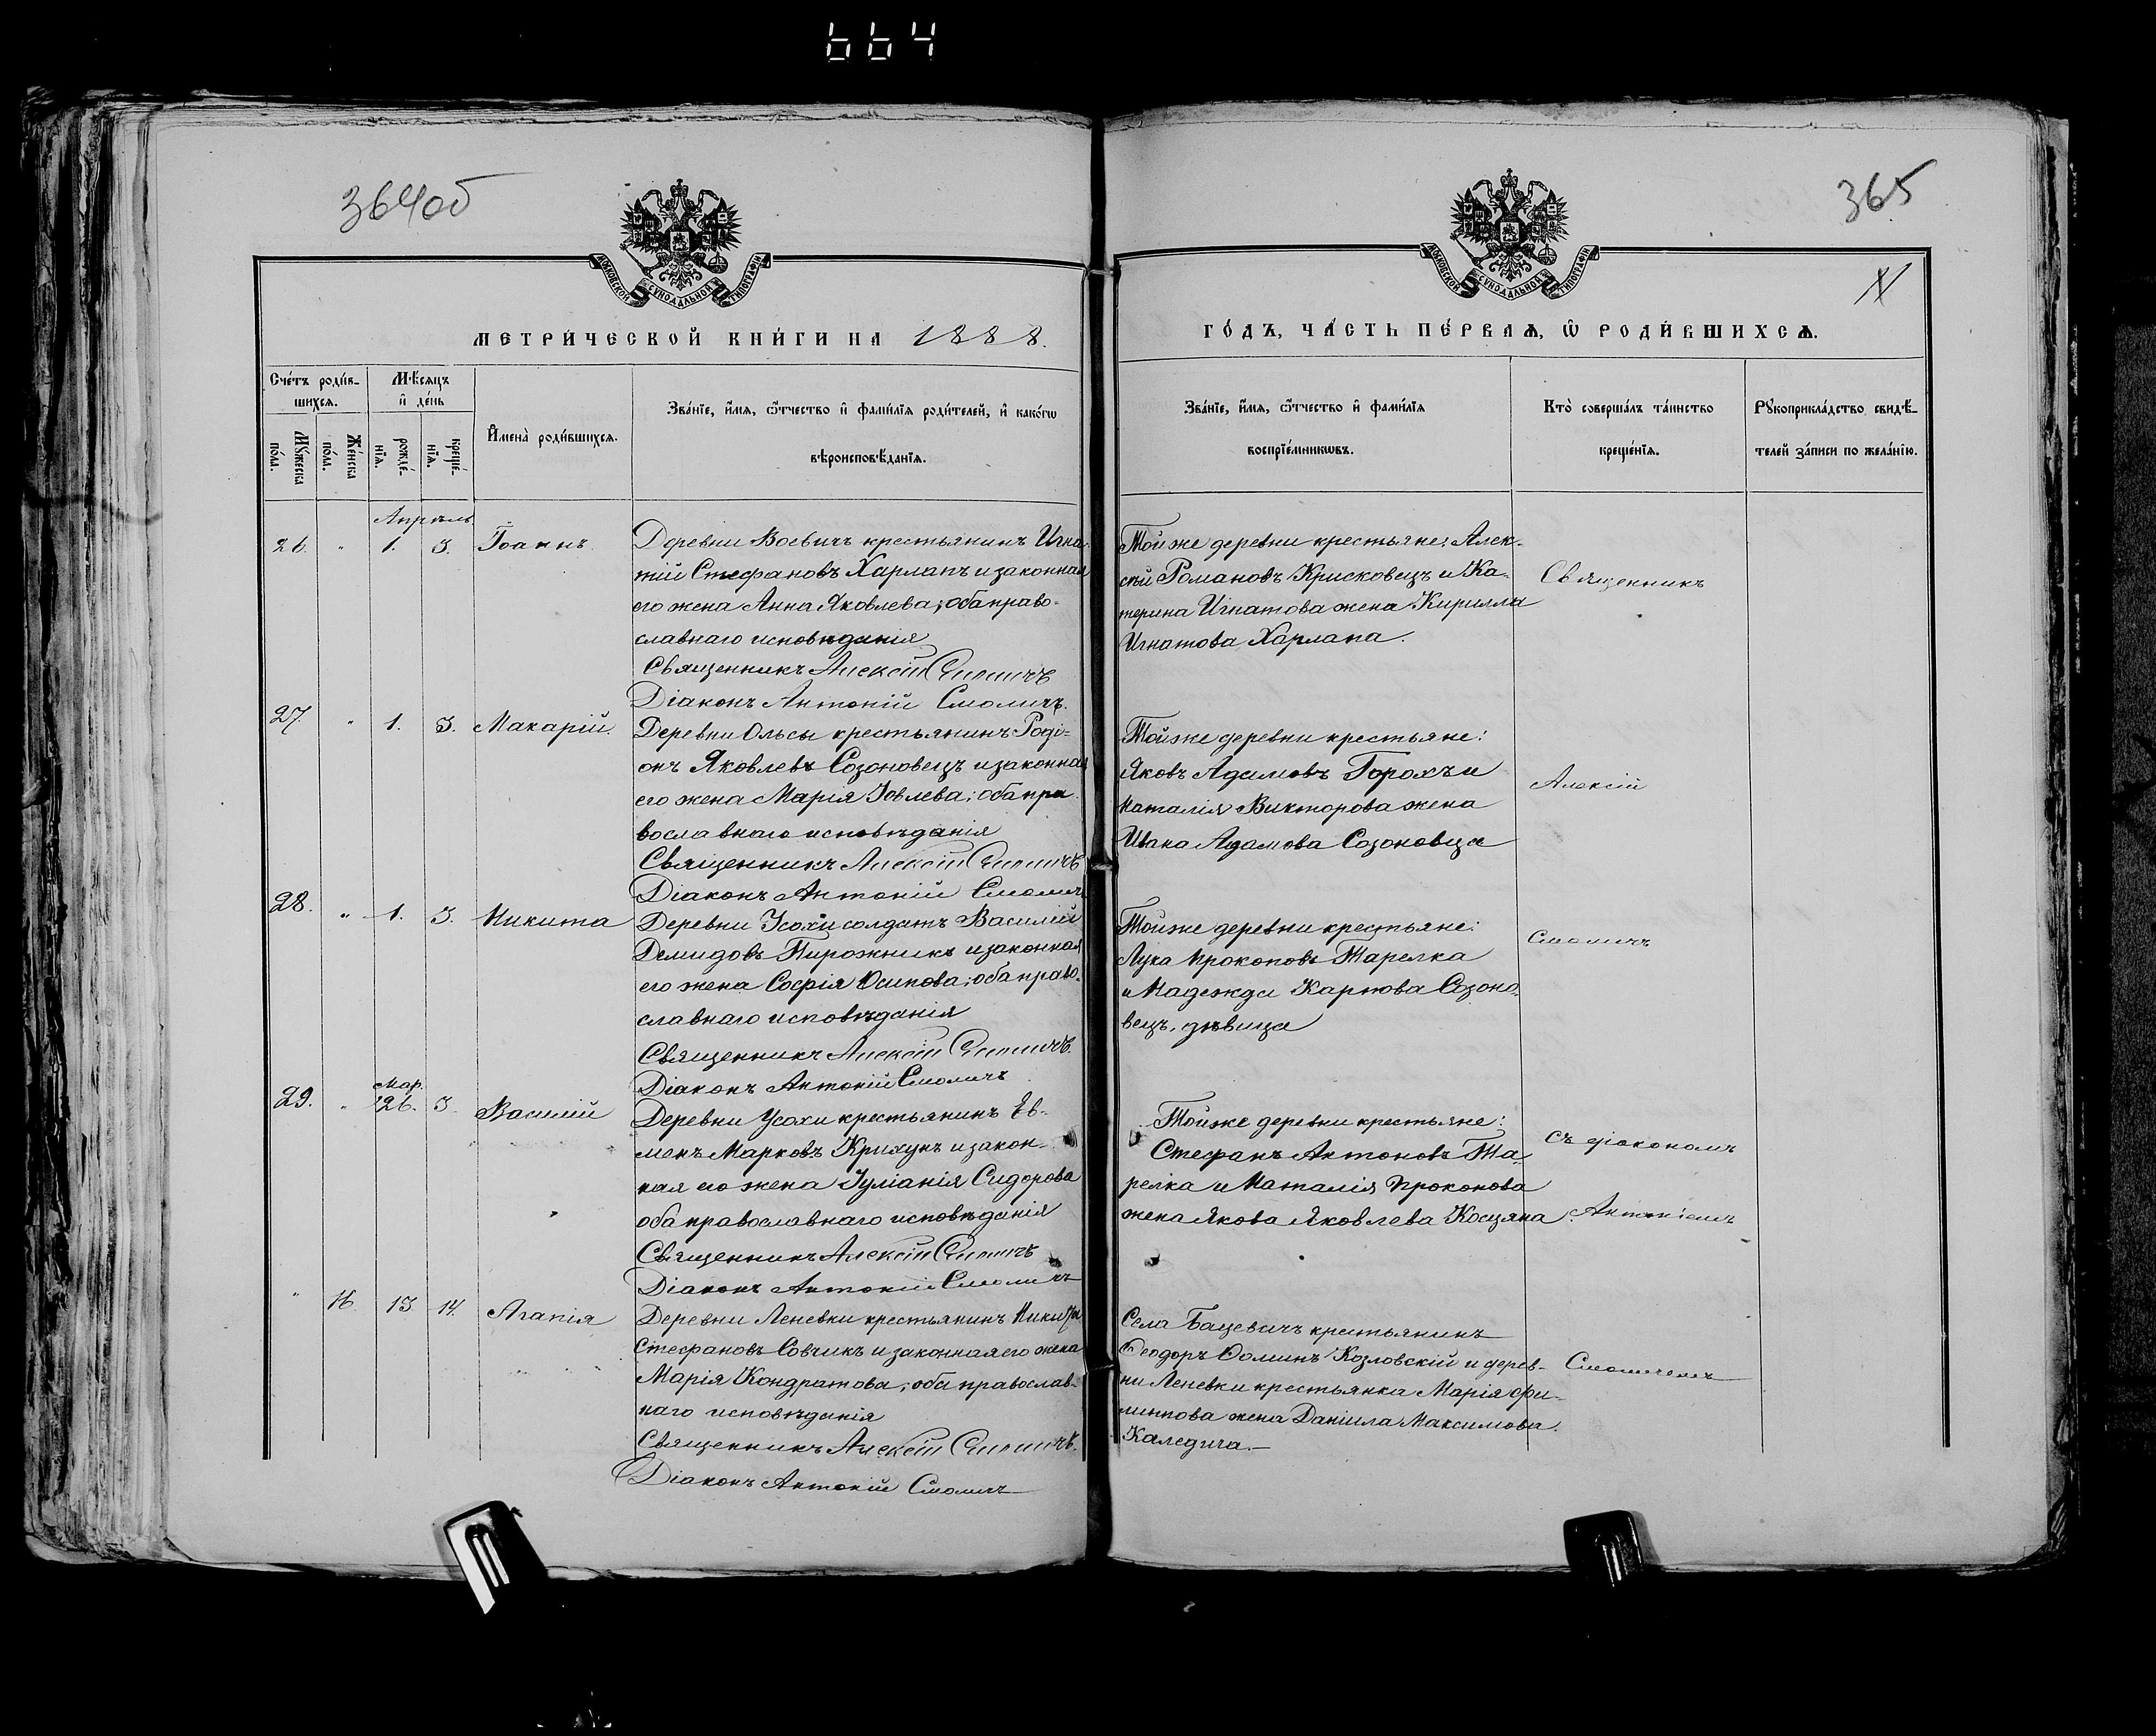 664
364об
365
МОСКОВСКОЙ СѴНОДАЛЬНОЙ ТИПОГРАФІИ
МОСКОВСКОЙ СѴНОДАЛЬНОЙ ТИПОГРАФІИ
МЕТРИ́ЧЕСКОЙ КНИ́ГИ НА 1888.
ГО́ДЪ, ЧА́СТЬ ПЕ́РВАѦ, Ѡ РОДИ́ВШИХСѦ.
Сче́тъ роди́в-
шихсѧ.
Мѣ́сяцъ
и҆ де́нь
Мꙋ́жеска по́ла.
Же́нска по́ла.
рожде́-
нїѧ.
креще́-
нїѧ.
И҆мена̀ роди́вшихсѧ.
Зва́нїе, и҆́мѧ, ѻ҆́тчество и҆ фами́лїѧ роди́телей, и҆ како́гѡ
вѣроисповѣ́данїѧ.
Зва́нїе, и҆́мѧ, ѻ҆́тчество и҆ фами́лїѧ
воспрїе́мникѡвъ.
Кто̀ соверша́лъ та́инство
креще́нїѧ.
Рꙋкоприкла́дство свидѣ́-
телей за́писи по жела́нїю.
Апрѣль
26. " 1. 3. Іоаннъ.
Деревни Воевичъ крестьянинъ Игна-
тій Стефановъ Харлапъ и законная
его жена Анна Яковлева; оба право-
славнаго исповѣданія
Священникъ Алексій Смоличъ
Діаконъ Антоній Смоличъ.
Той же деревни крестьяне: Алек-
сѣй Романовъ Крисковецъ и Ка-
терина Игнатова жена Кирилла
Игнатова Харлапа.
Священникъ
27 " 1. 3. Макарій.
Деревни Ольсы крестьянинъ Роді-
онъ Яковлевъ Созоновецъ и законная
его жена Марія Іовлева; оба пра-
вославнаго исповѣданія
Священникъ Алексій Смоличъ
Діаконъ Антоній Смоличъ
Той же деревни крестьяне:
Яковъ Адамовъ Горохъ и
Наталія Викторова жена
Ивана Адамова Созоновца
Алексій
28. " 1. 3. Никита
Деревни Усохи солдатъ Василій
Демидовъ Пирожникъ и законная
его жена Софія Осипова; оба право-
славнаго исповѣданія
Священникъ Алексій Смоличъ.
Діаконъ Антоній Смоличъ
Той же деревни крестьяне:
Лука Прокоповъ Тарелка
и Надежда Карпова Созоно-
вецъ, дѣвица
Смоличъ
Мар.
29. " 26. 3. Василій
Деревни Усохи крестьянинъ Ев-
менъ Марковъ Крихунъ и закон-
ная его жена Іуліанія Сидорова
оба православнаго исповѣданія
Священникъ Алексій Смоличъ
Діаконъ Антоній Смоличъ
Той же деревни крестьяне:
Стефанъ Антоновъ Та-
релка и Наталія Прокопова
жена Якова Яковлева Косцяна.
съ діакономъ
Антоніемъ
" 16. 13 14. Агапія
Деревни Леневки крестьянинъ Никита
Стефановъ Совчикъ и законная его жена
Марія Кондратова; оба православ-
наго исповѣданія
Священникъ Алексій Смоличъ.
Діаконъ Антоній Смоличъ
Села Бацевичъ крестьянинъ
Ѳеодоръ Ѳоминъ Козловскій и дерев-
ни Леневки крестьянка Марія Фи-
липпова жена Даніила Максимова
Каледича.
Смоличемъ